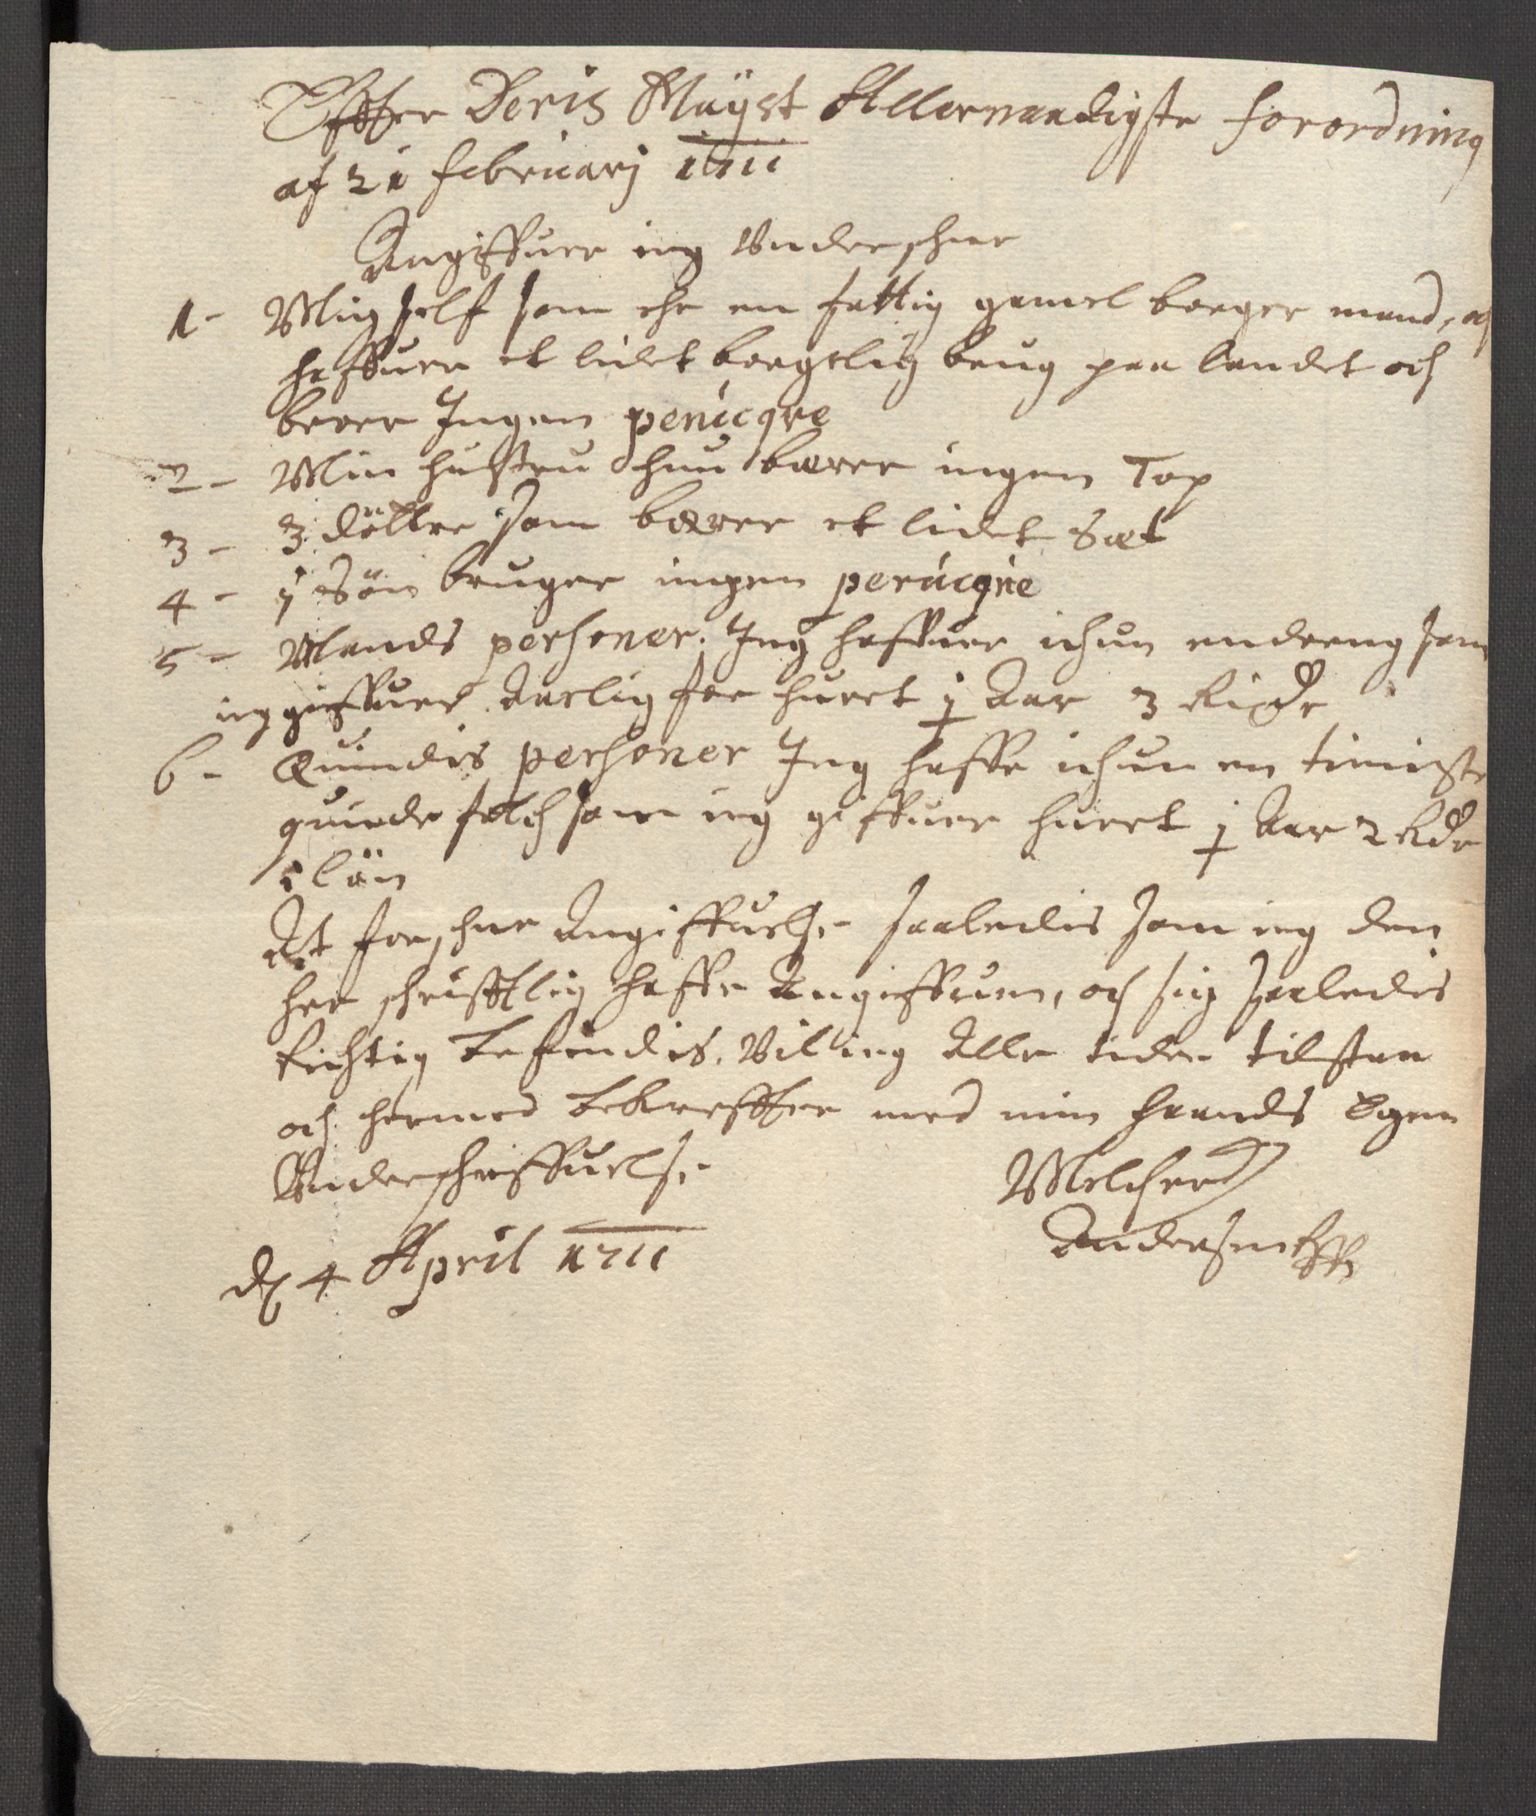 Effter Deris Mayst Allernaadigste Forordning
af 21 Februarj 1711
Angiffuer ieg Underschrr
1- Mig self som ehr en fattig gamel borger mand, och
haffuer et lidet borgelig brug paa landet och
berer Ingen perücqve
2- Min hustru hun bærer ingen Top
3- 3 döttre som bærer et lidet Sæt
4- j Sön bruger ingen perücqve
5- Mands personer. Ieg haffuer ichun en dreng som
ieg giffuer Aarlig for huert j Aar 3 Rixdr
6- Quindis personer Ieg haffr ichun en tienniste
quinde folch som ieg giffuer huert j Aar 2 Rdr
i lön
At forschrr Angiffuelse saaledis som ieg den
her schrifftlig haffr Angiffuen, och sig saaledis
Richtig befindis, Vil ieg Alle tider tilstaa
och hermed bekreffter med min haands Egen
Underschriffuelse
Melcher
Andersen
dn 4 April 1711